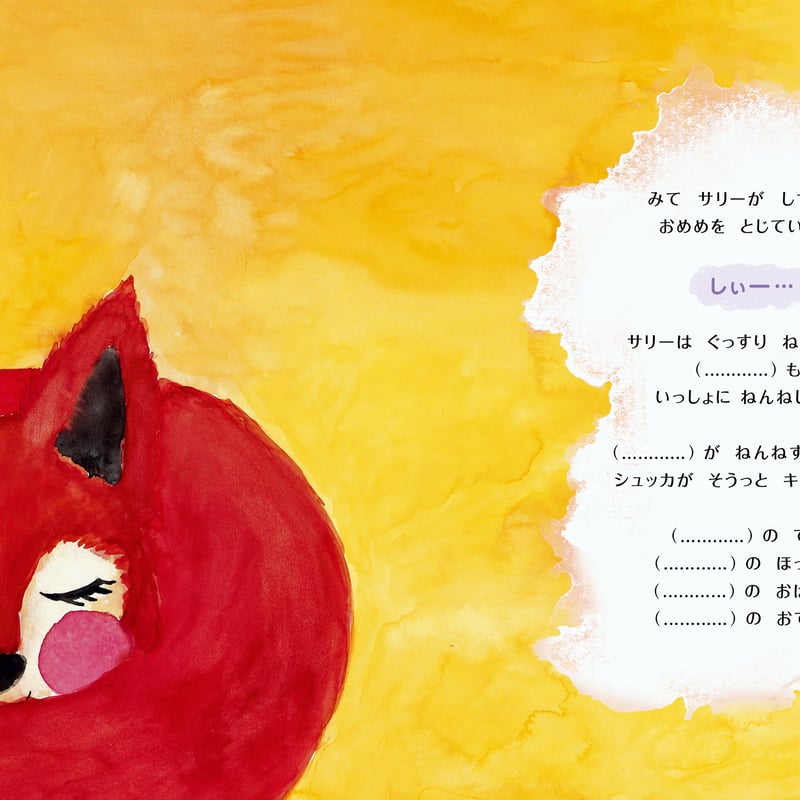 みて サリーが し
おめめを とじてい
しぃー…
サリーは ぐっすり ね
(............)も
いっしょに ねんねし
(............)が ねんねす
シュッカが そうっと キ
(............)の
(............)の ほっ
(............)の おは
(............)の おて